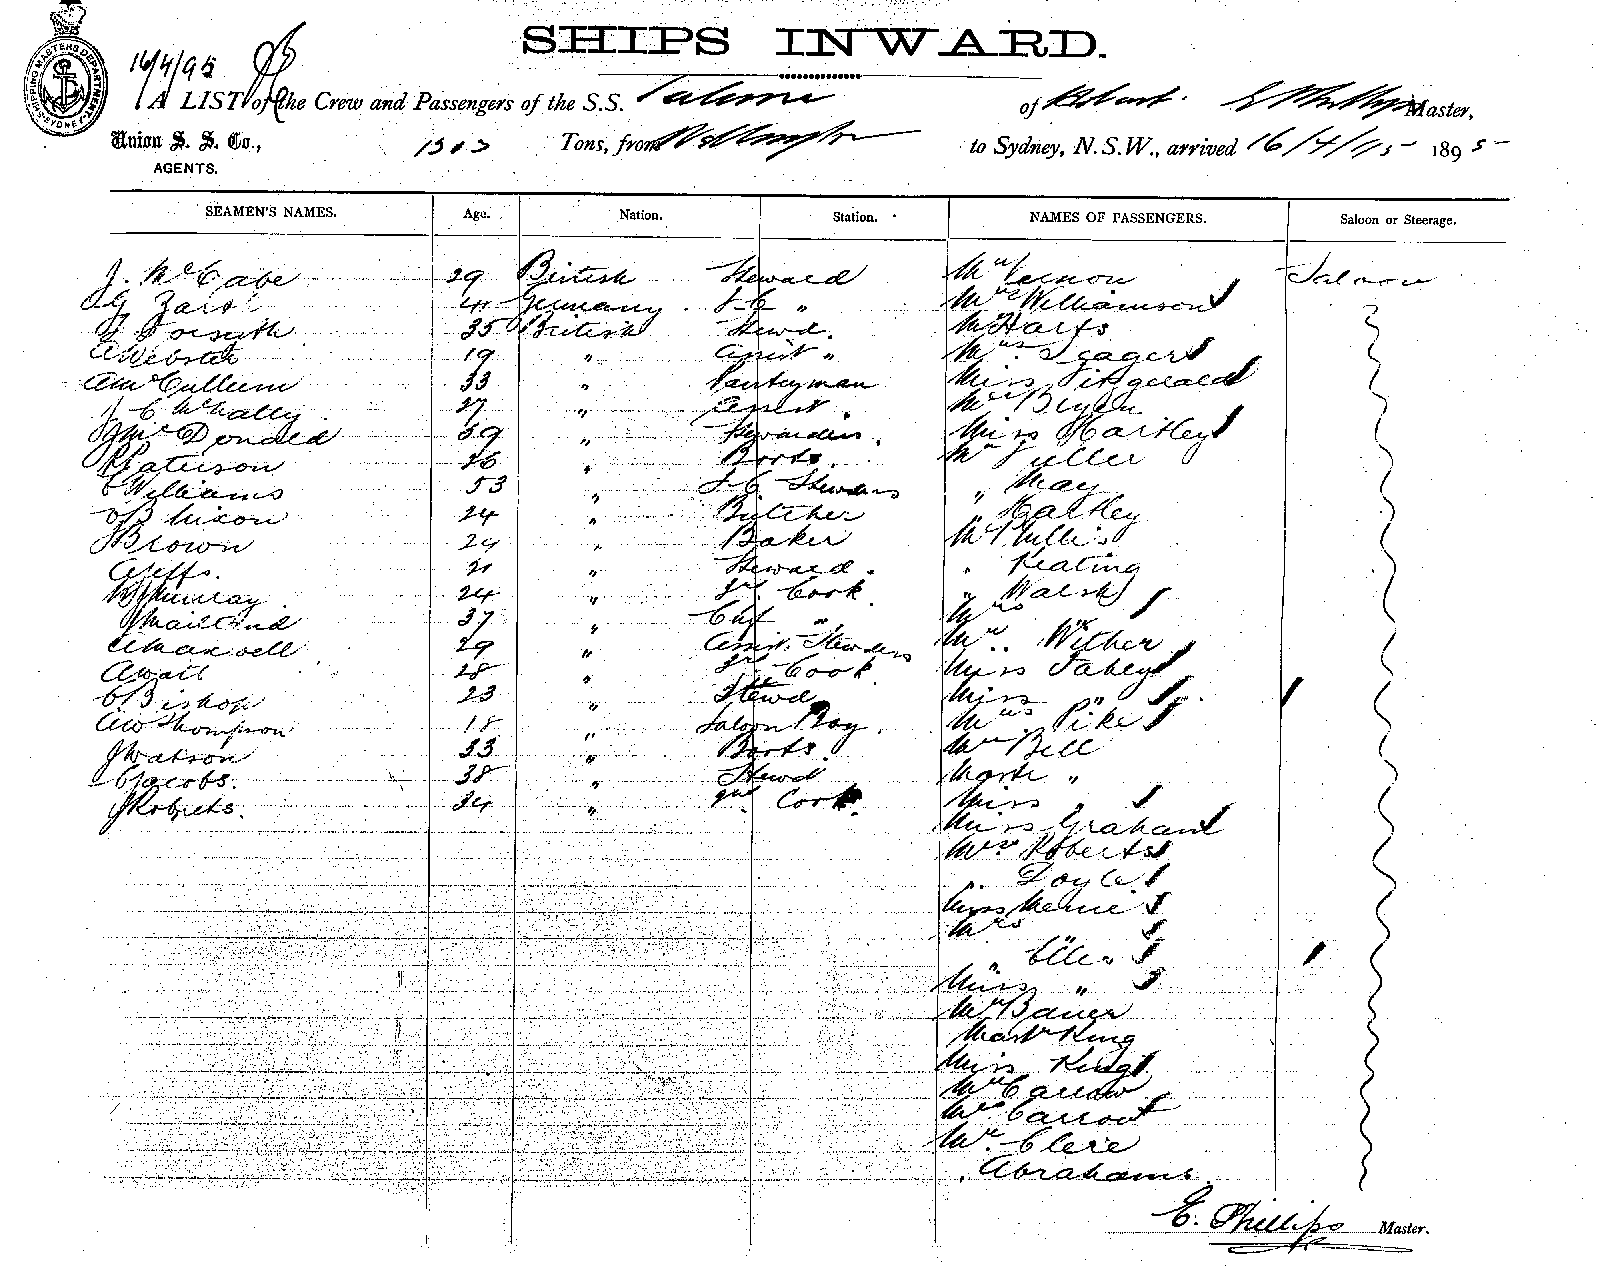 SHIPS INWARD.
SHIPPING MASTERS DEPARTMENT SYDNEY
16/4/95
A LIST of the Crew and Passengers of the S.S. of Hobart. E Phillips Master,
Union S. S. Co., 1303 Tons, from Wellington to Sydney, N.S.W., arrived 16/4/95 1895
AGENTS.
SEAMEN'S NAMES. Age. Nation. Station. NAMES OF PASSENGERS. Saloon or Steerage.
J. McCabe 29 British Steward Mr Vernon Saloon
41 Germany F-C " Mrs Williamson
Forsyth 35 British Stewd. Harts
A Webster 19 " Assist " Mrs Seager
A McCullum 33 " Pantryman Miss Fitzgerald
J C McNally 27 " Assist
McDonald 39 " Stewardess. Miss Hartley
Paterson 26 " Boots. Mr Fuller
C Williams 53 " F-C Stewdess " May
Nixon 24 " Butcher " Hartley
J Brown 24 " Baker Mr
21 " Steward. " Keating
Murray 24 " Cook " Walsh
Maitland 37 " Chf " Mrs "
Maxwell 29 " Assist. Stewdess Mr. Wither
A Wait 28 " Cook Miss Fahey
C Bishop 23 " Stewd Miss "
AW Thompson 18 " Saloon Boy. Mrs Pike
J Watson 33 " Boots. Mr Bell
C Jacobs. 38 " Stewd Mastr "
J Roberts. 34 " Cook. Miss "
Miss Graham
Mrs Roberts
Doyle
Miss
Mrs "
"
Miss "
Mr Bauer
Mastr King
Miss King
Mr Carrow
Mrs Carrow
Mr. Clere
Abrahams
E. Phillips Master.